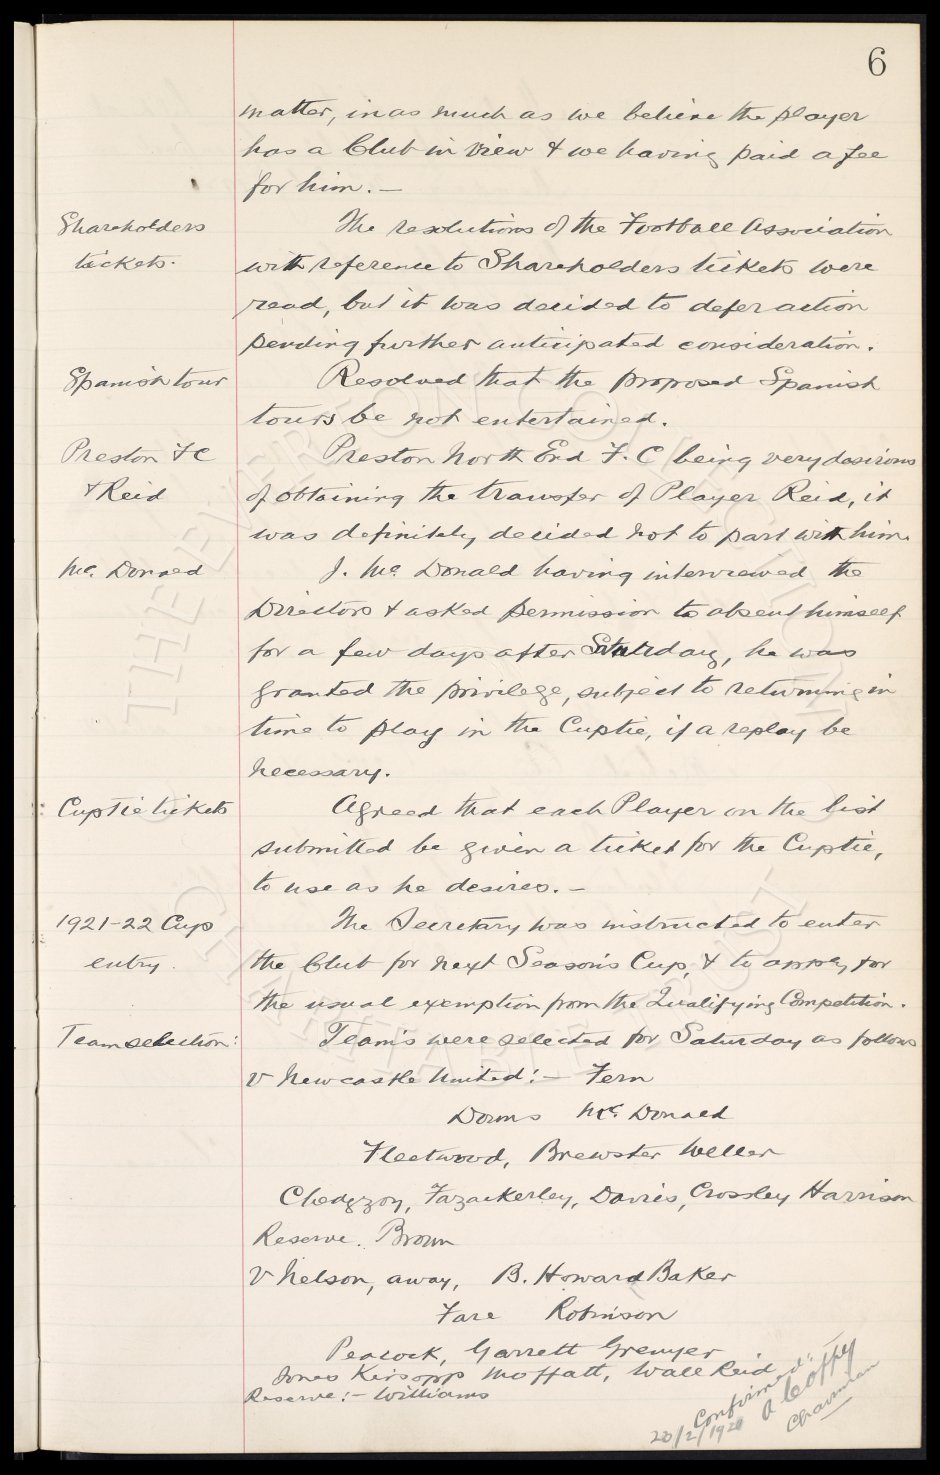 6
matter, inasmuch as we believe the player
has a Club in view & we having paid a fee
for him. —
Shareholders
tickets.
The resolutions of the Football Association
with reference to Shareholders tickets were
read, but it was decided to defer action
pending further anticipated consideration.
Spanish tour
Resolved that the proposed Spanish
tours be not entertained.
Preston F C
& Reid
Preston North End F. C being very desirous
of obtaining the transfer of Player Reid, it
was definitely decided not to part with him.
Mc. Donald
J. Mc Donald having interviewed the
Directors & asked permission to absent himself
for a few days after Saturday, he was
granted the privilege, subject to returning in
time to play in the Cuptie, if a replay be
necessary.
Cup Tie tickets
Agreed that each Player on the list
submitted be given a ticket for the Cuptie,
to use as he desires. —
1921-22 Cup
entry.
The Secretary was instructed to enter
the Club for next Season's Cup, & to apply for
the usual exemption from the Qualifying Competition.
Team selection:
Team's were selected for Saturday as follows
v Newcastle United:— Fern
Downs Mc. Donald
Fleetwood, Brewster Weller
Chedgzoy, Fazackerley, Davies, Crossley Harrison
Reserve. Brown
v Nelson, away, B. Howard Baker
Fare Robinson
Peacock, Garrett Grenyer
Jones Kirsopp Moffatt, Wall Reid
Reserve:- Williams
Confirmed:
A Coffey
Chairman
THE EVERTON